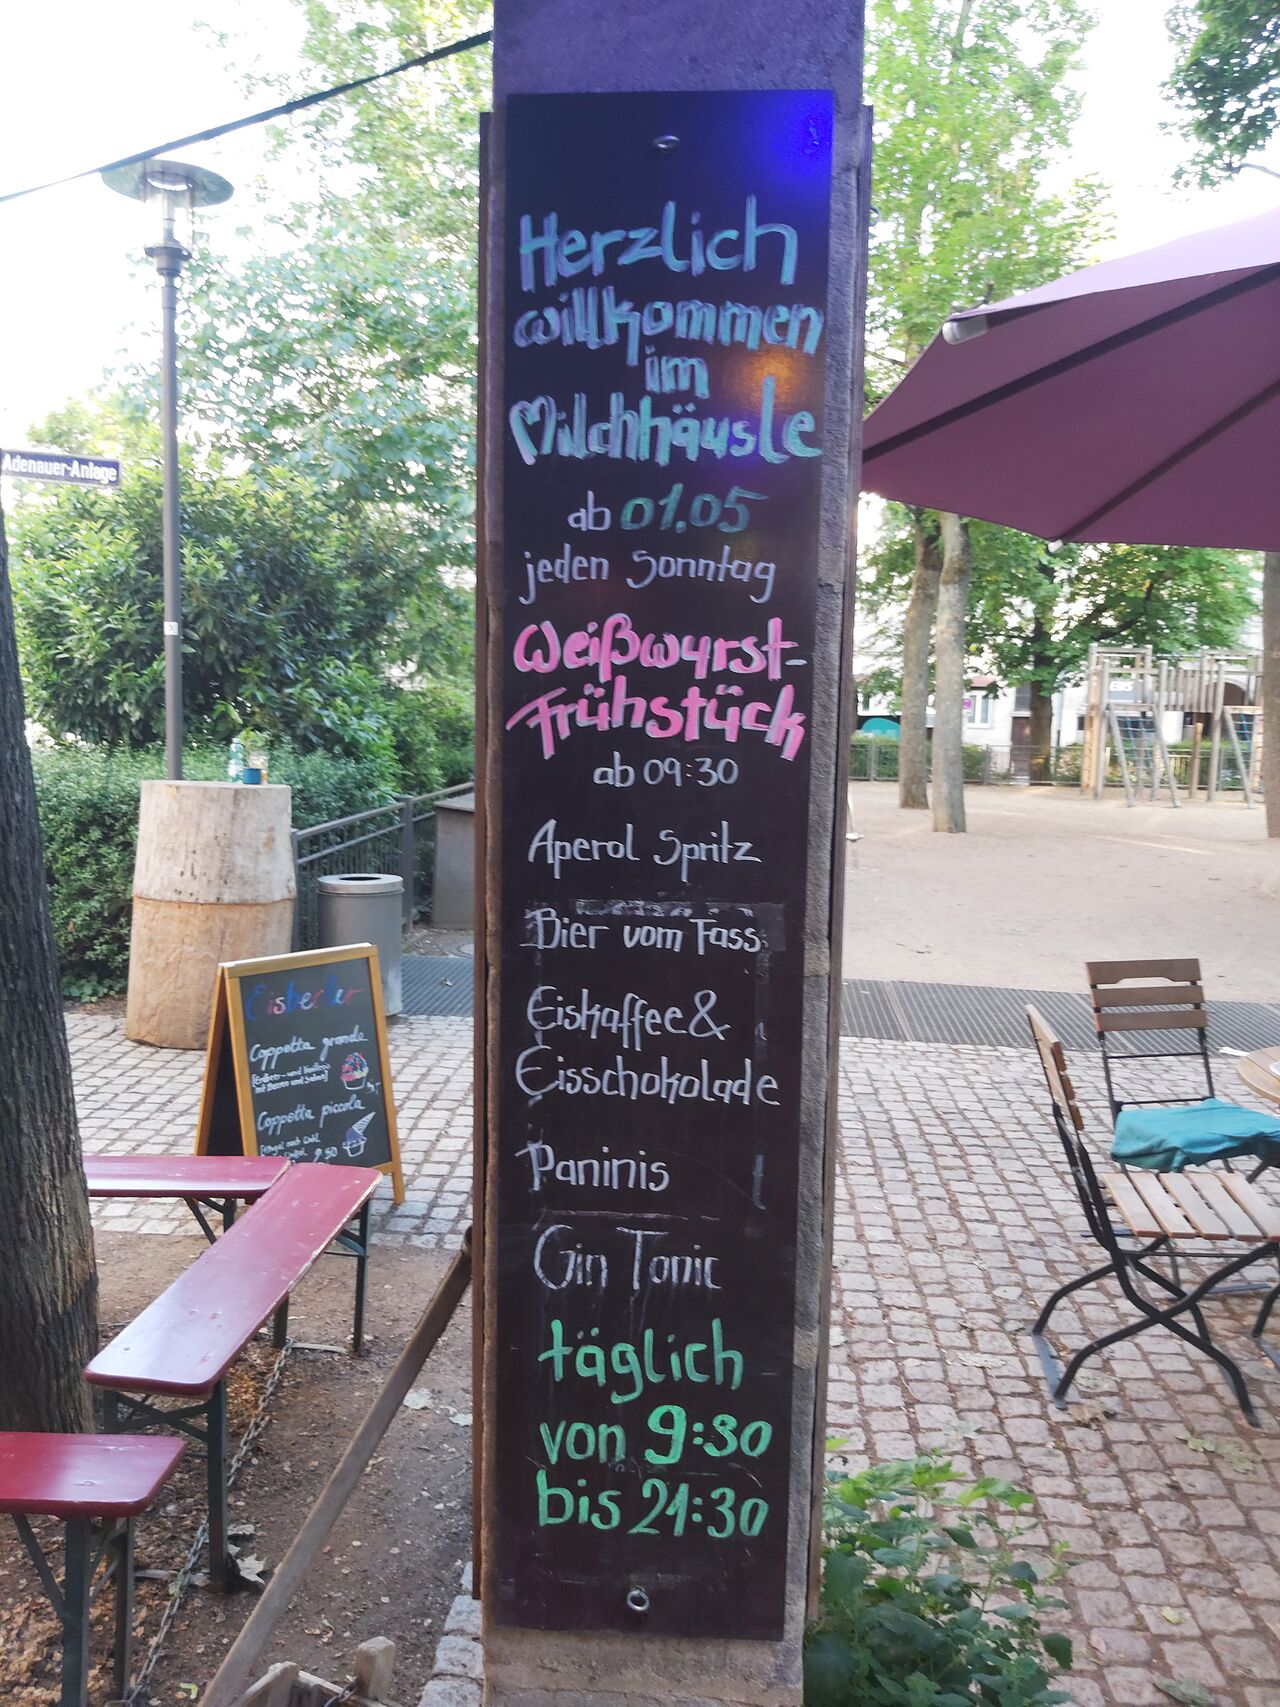 Herzlich
willkommen
im
Milchhäusle
ab 01.05
jeden Sonntag
Weißwurst-
Frühstück
ab 09:30
Aperol Spritz
Bier vom Fass
Eiskaffee &
Eisschokolade
Paninis
Gin Tonic
täglich
von 9:30
bis 21:30
Adenauer-Anlage
Eisbecher
Coppetta grande
[Erdbeer- und Vanilleeis
mit Beeren und Sahne]
Coppetta piccola
9,50